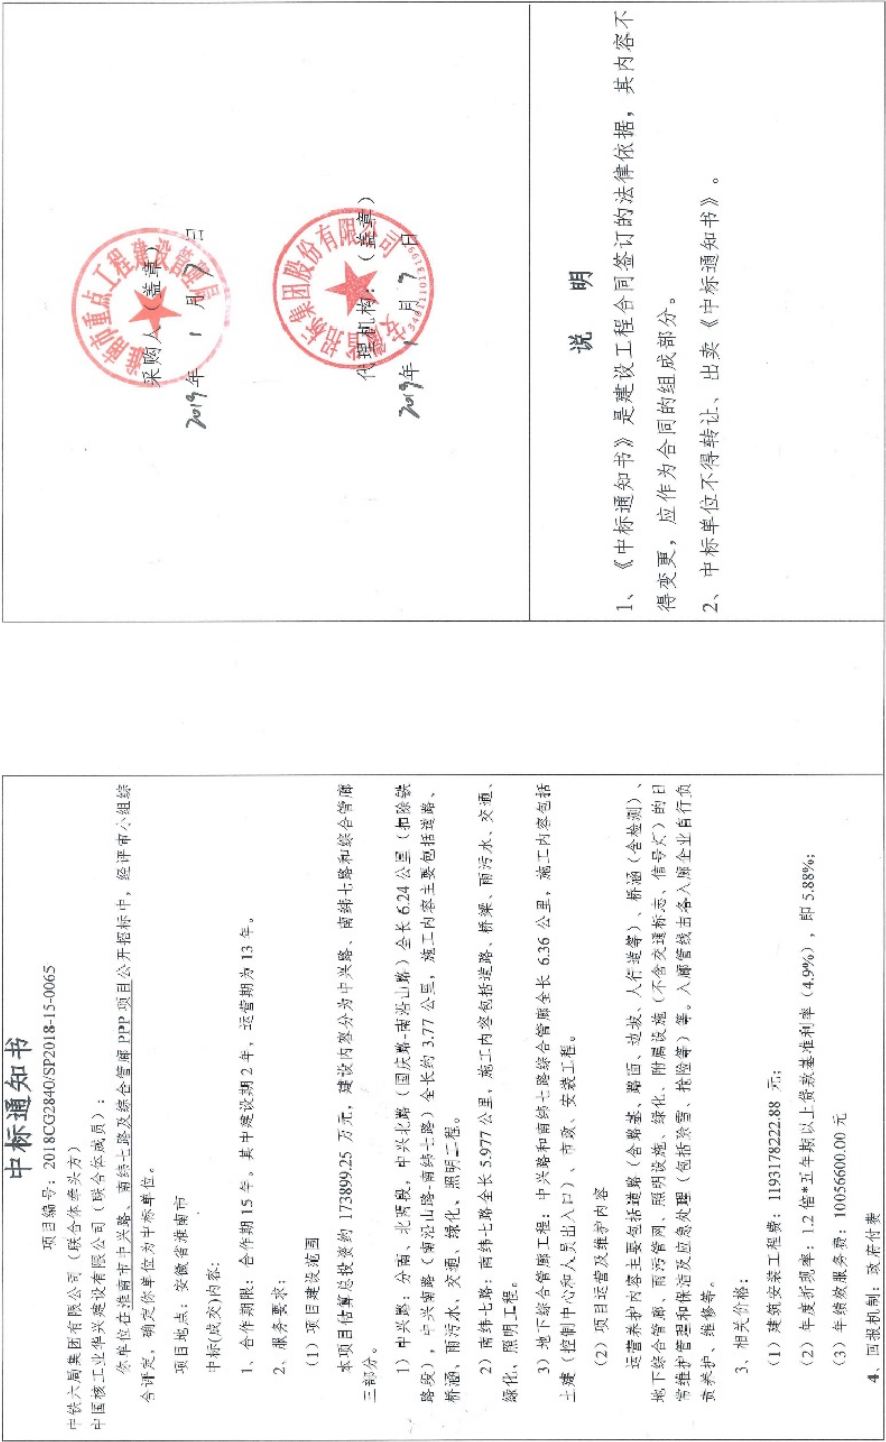 中标通知书
项目编号：2018CG2840/SP2018-15-0065
中铁六局集团有限公司（联合体牵头方）
中国核工业华兴建设有限公司（联合体成员）：
你单位在淮南市中兴路、南纬七路及综合管廊 PPP 项目公开招标中，经评审小组综
合评定，确定你单位为中标单位。
项目地点：安徽省淮南市
中标(成交)内容：
1、合作期限：合作期 15 年。其中建设期 2 年，运营期为 13 年。
2、服务要求：
（1）项目建设范围
本项目估算总投资约 173899.25 万元，建设内容分为中兴路、南纬七路和综合管廊
三部分。
1）中兴路：分南、北两段，中兴北路（国庆路-南沿山路）全长 6.24 公里（扣除铁
路段），中兴南路（南沿山路-南纬七路）全长约 3.77 公里，施工内容主要包括道路、
桥涵、雨污水、交通、绿化、照明工程。
2）南纬七路：南纬七路全长 5.977 公里，施工内容包括道路、桥梁、雨污水、交通、
绿化、照明工程。
3）地下综合管廊工程：中兴路和南纬七路综合管廊全长 6.36 公里，施工内容包括
土建（控制中心和人员出入口）、市政、安装工程。
（2）项目运营及维护内容
运营养护内容主要包括道路（含路基、路面、边坡、人行道等）、桥涵（含检测）、
地下综合管廊、雨污管网、照明设施、绿化、附属设施（不含交通标志、信号灯）的日
常维护管理和保洁及应急处理（包括除雪、抢险等）等。入廊管线由各入廊企业自行负
责养护、维修等。
3、相关价格：
（1）建筑安装工程费：1193178222.88 元；
（2）年度折现率：1.2 倍*五年期以上贷款基准利率（4.9%），即 5.88%；
（3）年绩效服务费：10056600.00 元
4、回报机制：政府付费
淮南市重点工程建设管理局
采购人（盖章）
2019年 1 月 7 日
安徽省招标集团股份有限公司
代理机构：（盖章）
2019年 1 月 7 日
说 明
1、《中标通知书》是建设工程合同签订的法律依据，其内容不
得变更，应作为合同的组成部分。
2、中标单位不得转让、出卖《中标通知书》。